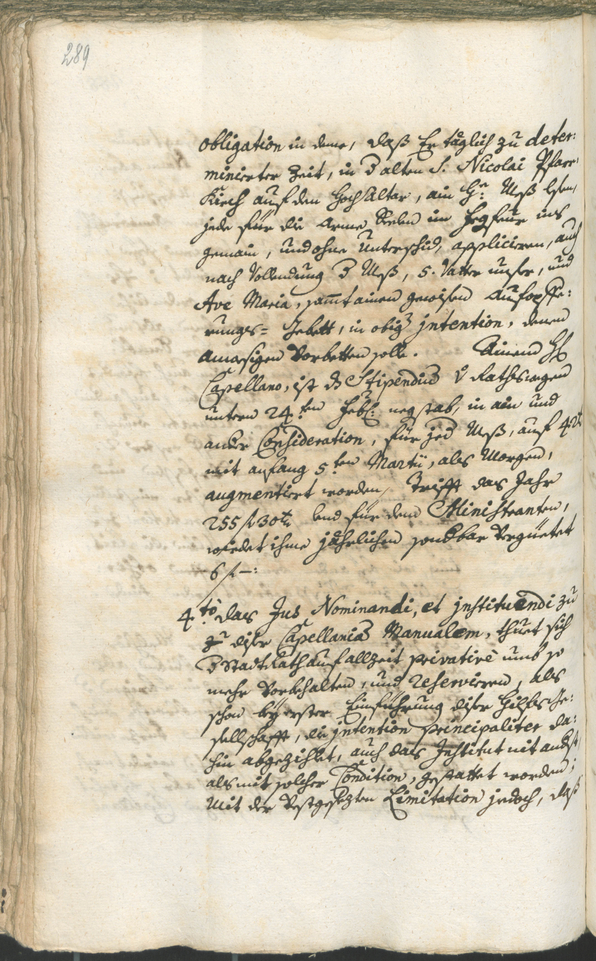 289
obligation in deme, daß Er täglich zu deter-
minierter Zeit, in d alten S. Nicolai Pfarr-
Kirch auf den Hochaltar, ain H: Meß lesen,
jede für die Arme Seelen im Fegfeur ins
gemain, und ohne Unterschid, applicieren, auch
nach Vollendung d Meß, 5. Vatter unser, und
Ave Maria, sammt ainem gewisen Aufopfe-
rungs-Gebett, in obig intention, denen
Anwesigen Vorbetten solle. Ainem H:
Capellano, ist ds Stipendiu v Rathswegen
unterm 24.ten Feb: , in ain und
andere Consideration, für jed Meß, auf 42 x
mit anfang 5ten Martii, als Morgen,
augmentiert worden, trifft das Jahr
255 f 30 x. Und für den Ministranten,
würdet ihme jährlichen sonderbar Vergüetet
6 f —:
4.to das Jus Nominandi, et instituendi zu
diser Capellania Manualem, thuet sich
d StadtRath auf allzeit privative umb so
mehr Vorbehalten, und reservieren, als
schon bey erster Einführung diser Hilfs-Ge-
sellschafft, die intention principaliter da-
hin abgezihlet, auch das Institut nit anderst
als mit solcher Condition, gestattet worden;
Mit der Vestgesezten Limitation jedoch, daß